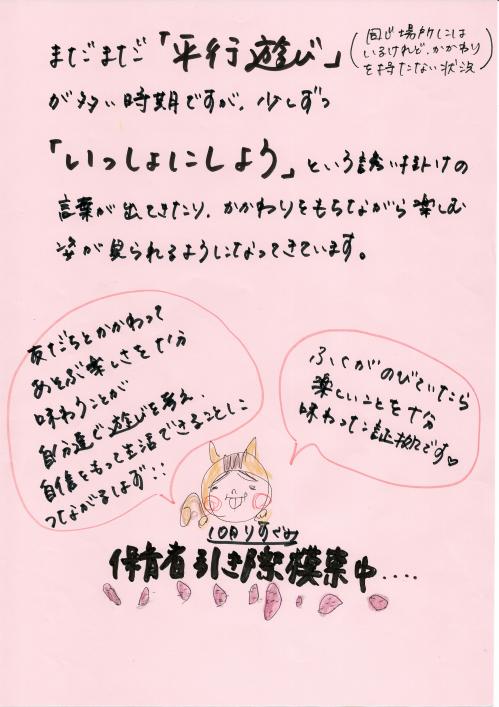 まだまだ「平行遊び」
(同じ場所には
いるけれど、かかわり
を持たない状況)
が多い時期ですが、少しずつ
「いっしょにしよう」という誘い掛けの
言葉が出てきたり、かかわりをもちながら楽しむ
姿が見られるようになってきています。
友だちとかかわって
あそぶ楽しさを十分
味わうことが
自分達で遊びを考え、
自信をもって生活できることに
つながるはず!!
ふくがのびていたら
楽しいことを十分
味わった証拠です♡
10月りすぐみ
保育者引き際模索中....